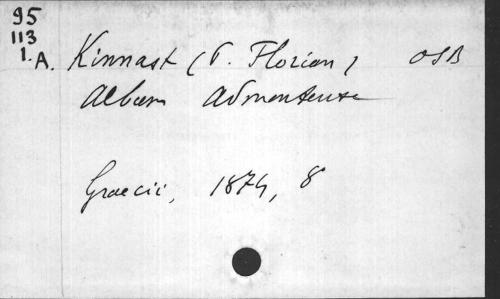 95
113
1.A.
Kinnast (P. Florian) OSB
Album Admontense
Graecii, 1874, 8